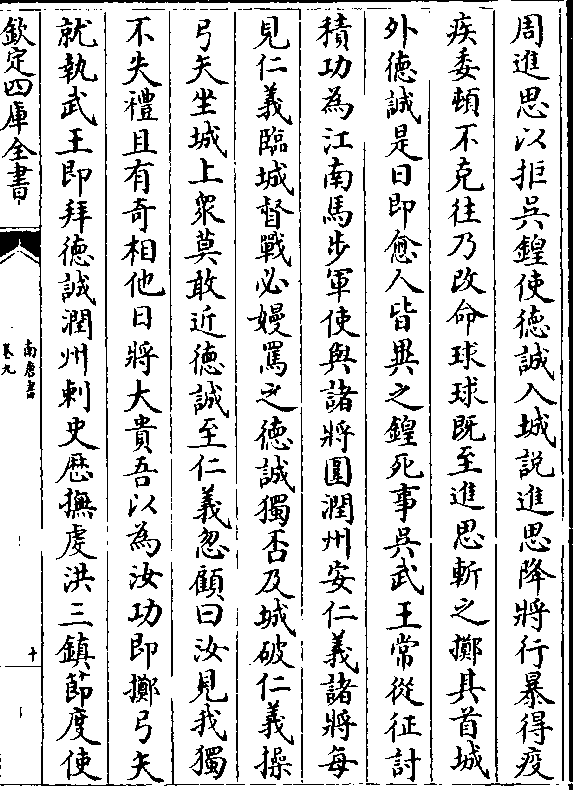 周進思以拒吳鍠使徳誠入城説進思降將行暴得疫
疾委頓不克往乃改命球球既至進思斬之擲其首城
外徳誠是日即愈人皆異之鍠死事吳武王常從征討
積功為江南馬步軍使與諸將圍潤州安仁義諸將每
見仁義臨城督戰必嫚罵之徳誠獨否及城破仁義操
弓矢坐城上衆莫敢近徳誠至仁義忽顧曰汝見我獨
不失禮且有奇相他日將大貴吾以為汝功即擲弓矢
就執武王即拜徳誠潤州刺史歴撫䖍洪三鎮節度使
欽定四庫全書
南唐書
卷九
十